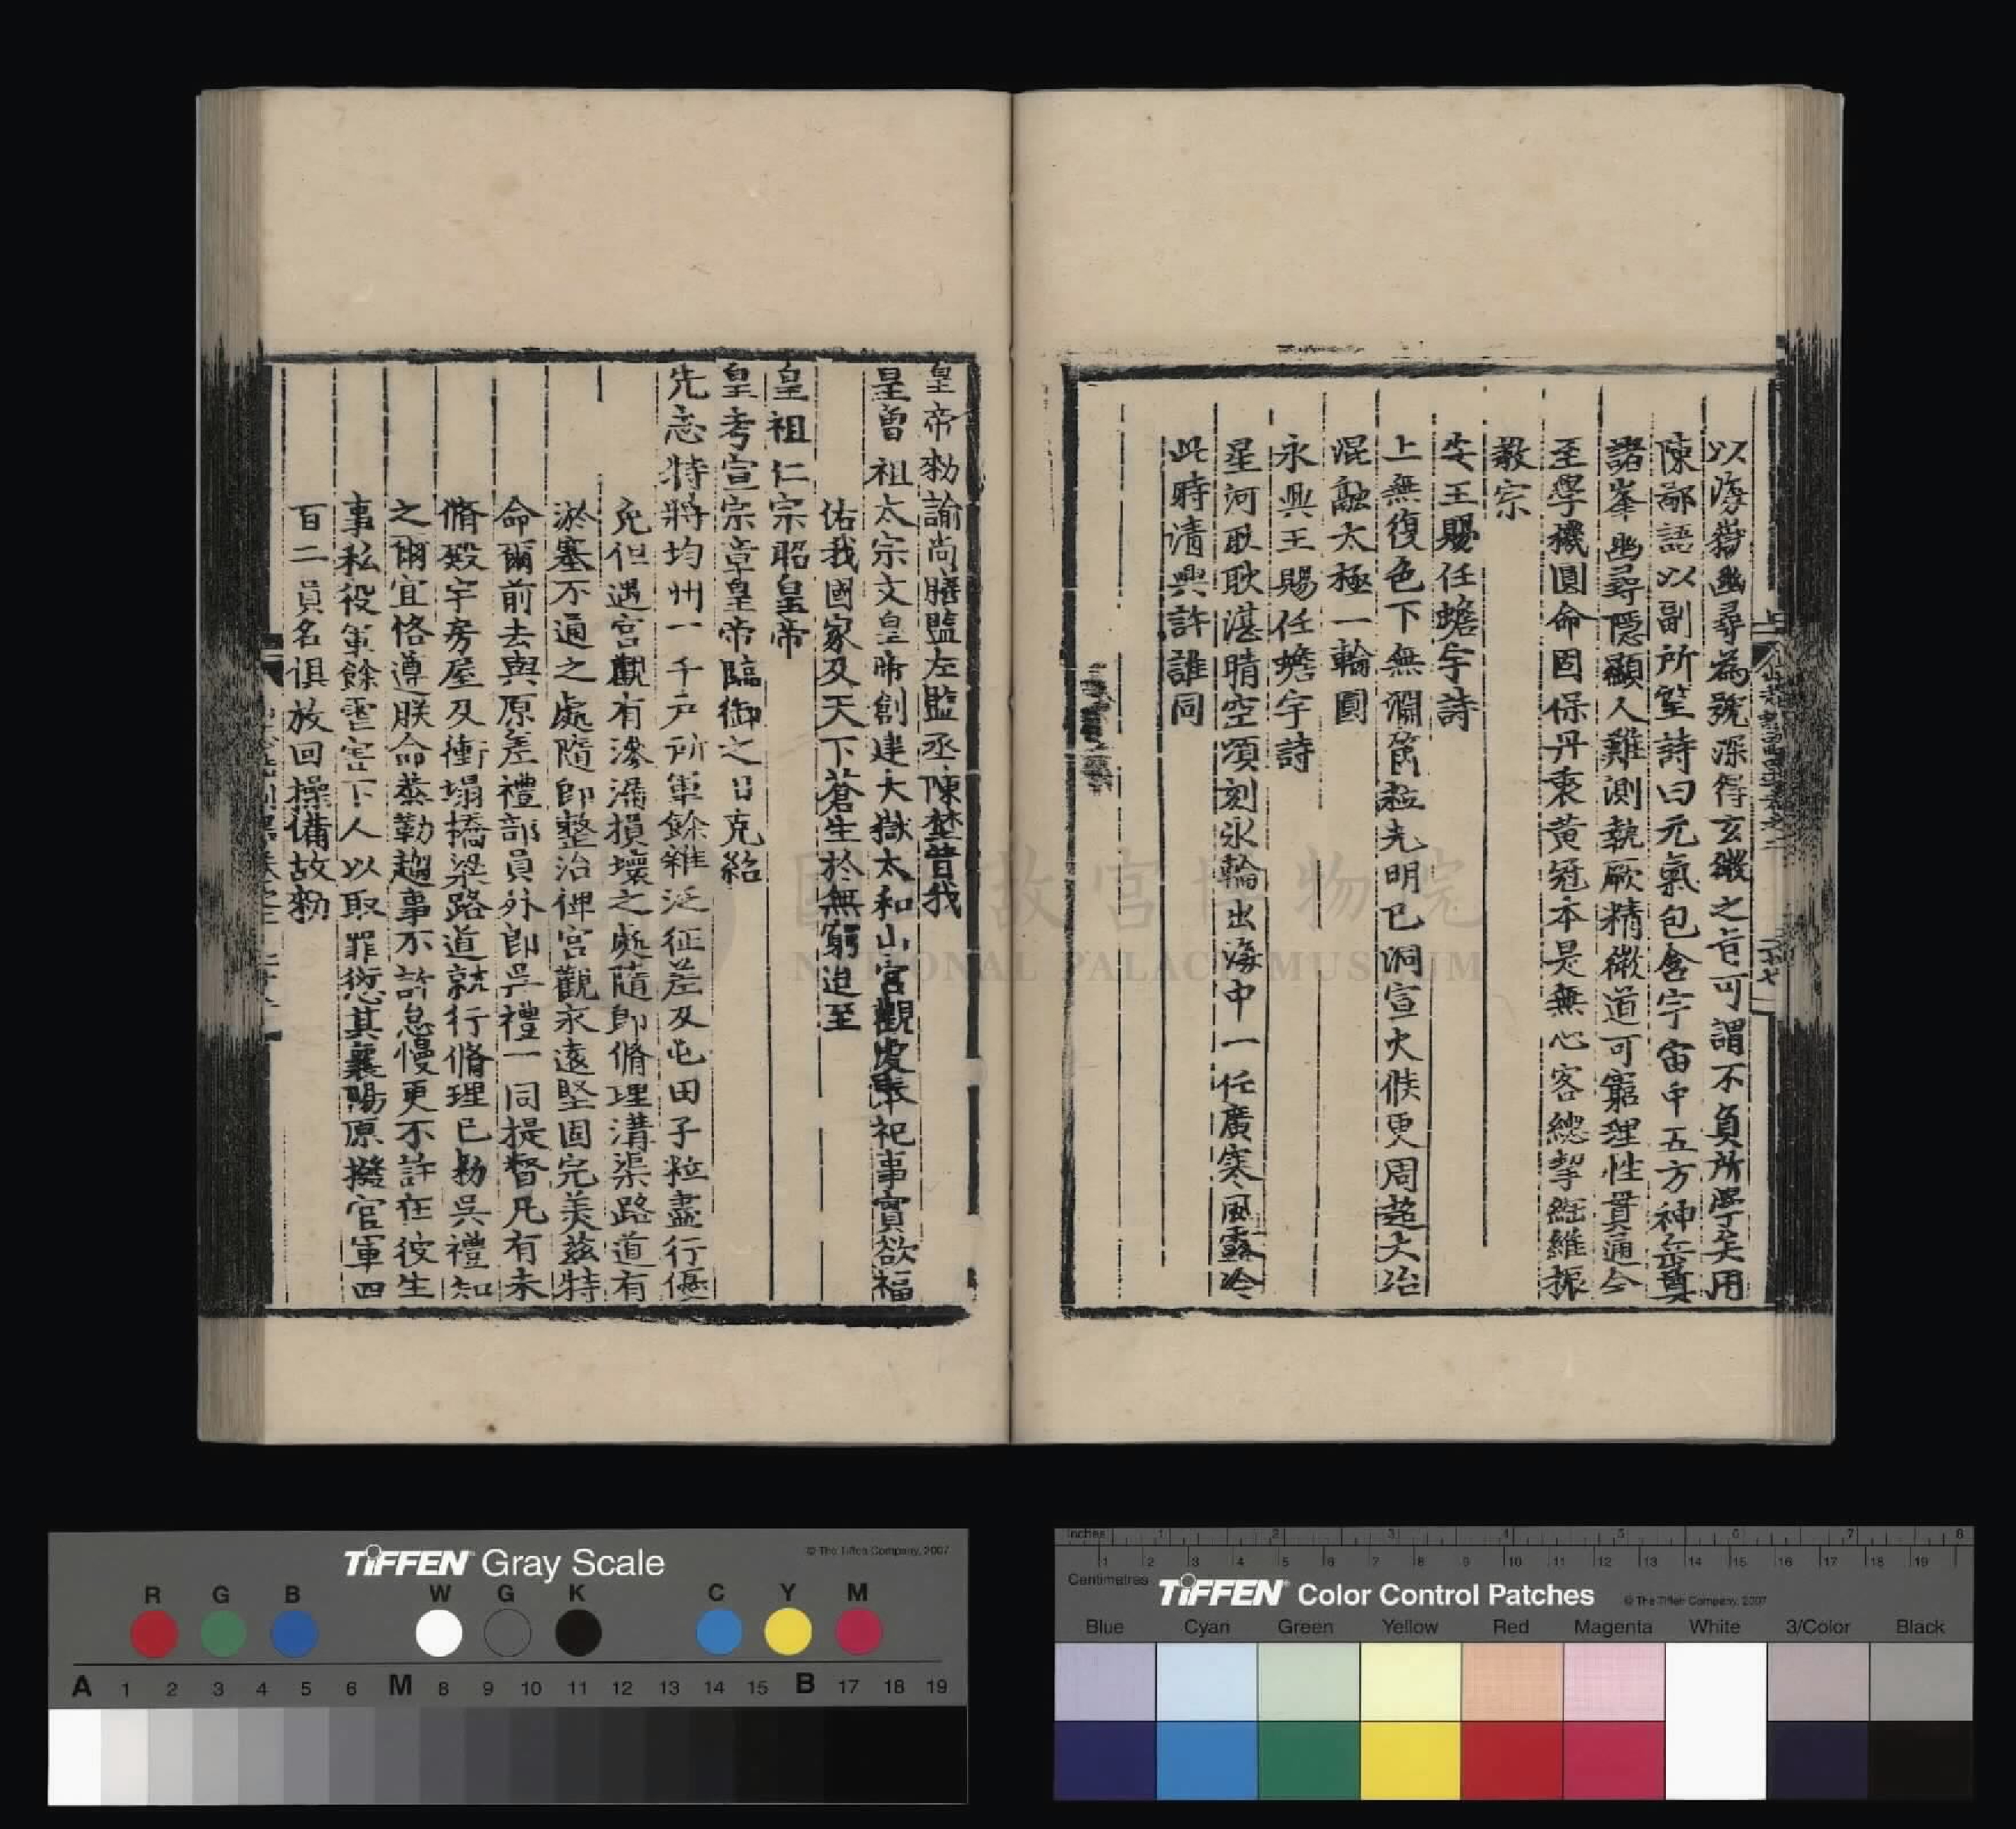 以海嶽幽尋為號深得玄機之旨可謂不負所學矣用
陳鄙語以副所望詩曰元氣包含宇宙中五方神岳奠
諸峯幽尋隱顯人難測執厥精微道可窮理性貫通今
至學機圓命固保丹秉黃冠本是無心客總挈綱維振
教宗
安王賜任蟾宇詩
上無復色下無淵箇粒光明已洞宣火候更周超大冶
混融太極一輪圓
永興王賜任蟾宇詩
星河耿耿湛晴空頃刻氷輪出海中一任廣寒風露冷
此時清興許誰同
皇帝勑諭尚膳監左監丞陳埜昔我
皇曾祖太宗文皇帝創建大嶽太和山宮觀虔奉祀事實欲福
佑我國家及天下蒼生於無窮迨至
皇祖仁宗昭皇帝
皇考宣宗章皇帝臨御之日克紹
先志特將均州一千戶所軍餘雜泛征差及屯田子粒盡行優
免但遇宮觀有滲漏損壞之處隨即脩理溝渠路道有
淤塞不通之處隨即整治俾宮觀永遠堅固完美茲特
命爾前去與原差禮部員外郎吳禮一同提督凡有未
脩殿宇房屋及衝塌橋梁路道就行脩理已勑吳禮知
之爾宜恪遵朕命恭勤趨事不許怠慢更不許在彼生
事私役軍餘害下人以取罪愆其襄陽原撥官軍四
百二員名俱放回操備故勑
國立故宮博物院
NATIONAL PALACE MUSEUM
TIFFEN Gray Scale
© The Tiffen Company, 2007
R G B W G K C Y M
A 1 2 3 4 5 6 M 8 9 10 11 12 13 14 15 B 17 18 19
Inches 1 2 3 4 5 6 7 8
1 2 3 4 5 6 7 8 9 10 11 12 13 14 15 16 17 18 19
Centimetres
TIFFEN Color Control Patches
© The Tiffen Company, 2007
Blue Cyan Green Yellow Red Magenta White 3/Color Black